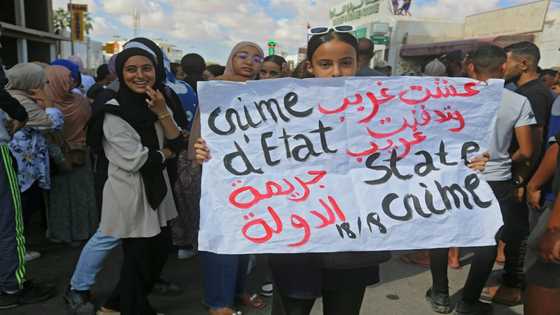 crime
d'Etat
جريمة
الدولة
عشت غريب
وتدفنت
غريب
State
crime
18/18